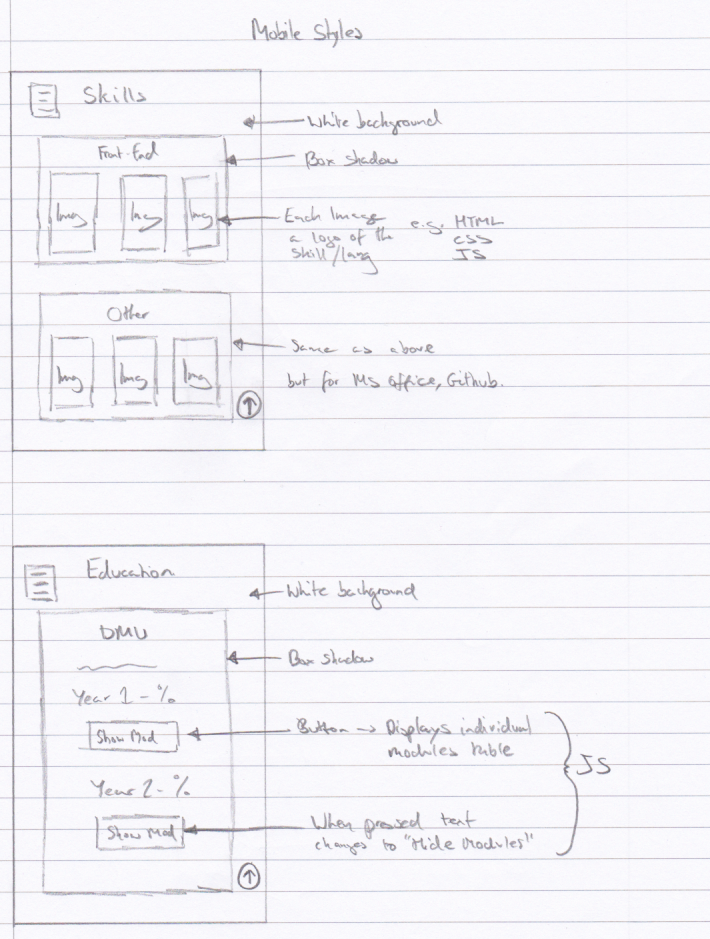 Mobile Styles
Skills
White background
Front-End
Box shadow
Img Img Img
Each Image e.g. HTML
a logo of the CSS
skill/lang JS
Other
Same as above
Img Img Img
but for MS Office, Github.
Education
White background
DMU
Box shadow
Year 1 - %
Show Mod
Button → Displays individual
modules table
JS
Year 2 - %
Show Mod
When pressed text
changes to "Hide Modules"